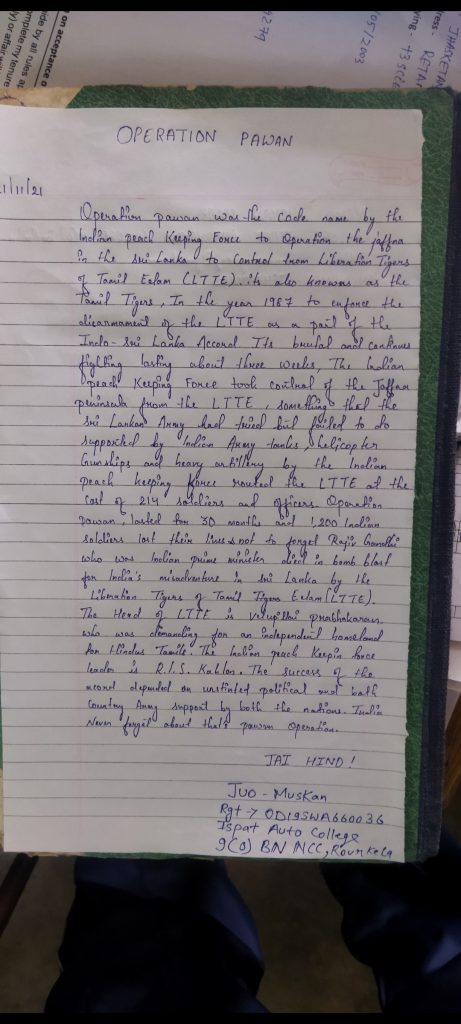 on acceptance o
ide by all rules a
omplete my tenure
y) or affair wi
9279
/05/2003
ress:- RETA
ving:- +3 sce
OPERATION PAWAN
1/11/21
Operation pawan was the code name by the
Indian peach Keeping Force to Operation the jaffna
in the sri Lanka to Control from Liberation Tigers
of Tamil Eelam (LTTE). its also knowns as the
Tamil Tigers, In the year 1987 to enforce the
disarmament of the LTTE as a part of the
Indo-sri Lanka Accord Its brutal and continues
fighting lasting about three weeks, The Indian
peach Keeping Force took control of the Jaffna
peninsula from the LTTE, something that the
sri Lankan Army had tried but failed to do
supported by Indian Army tanks, helicopter
Gunships and heavy artillery by the Indian
peach keeping force routed the LTTE at the
cost of 214 soldiers and officers. Operation
pawan, lasted for 30 months and 1,200 Indian
soldiers lost their lives not to forget Rajiv Gandhi
who was Indian prime minister died in bomb blast
for India's misadventure in sri Lanka by the
Liberation Tigers of Tamil Tigers Eelam (LTTE).
The Head of LTTE is velupillai prabhakaran.
who was demanding for an independent homeland
for Hindus Tamils. The Indian peach Keepin force
leader is R.I.S. Kahlon. The success of the
accord depended on unstinted political and both
country Army support by both the nations. India
Never forget about that's pawan operation.
JAI HIND!
JUO - MUSKAN
Rgt -> OD19SWA660036
Ispat Auto College
9(O) BN NCC, Rourkela